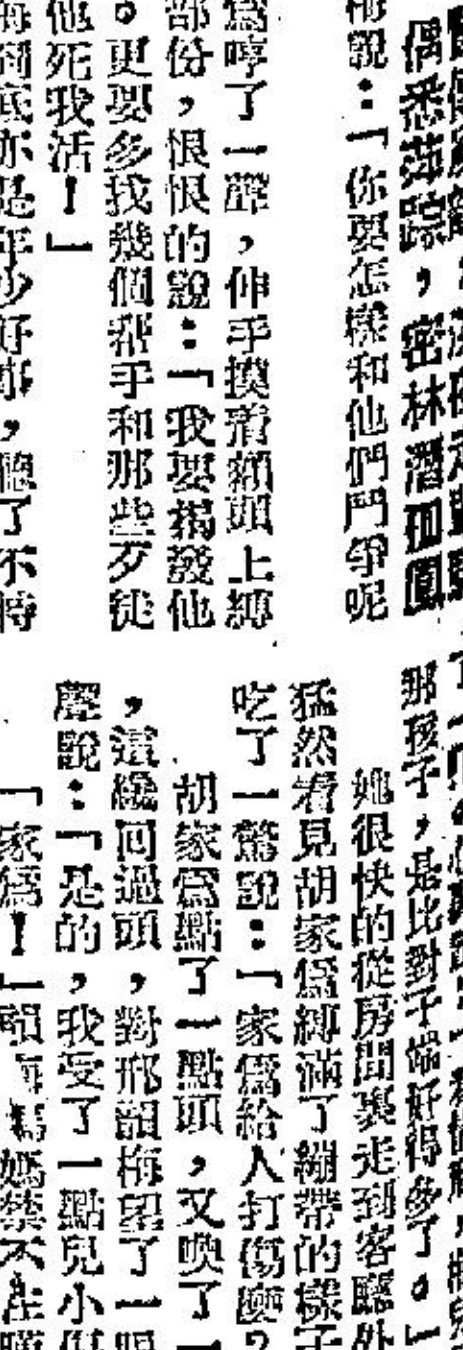 偶悉萍踪，密林潛孤鳳
梅說：「你要怎樣和他們鬥爭呢
爲哼了一聲，伸手摸着額頭上縛
部份，恨恨的說：「我要揭發他
。更要多找幾個幫手和那些歹徒
他死我活！」
梅到底亦是年少好事，聽了不特
那孩子，是比對子端好得多了。」
她很快的從房間裏走到客廳外
猛然看見胡家爲縛滿了繃帶的樣子
吃了一驚說：「家爲給人打傷麼？
胡家爲點了一點頭，又喚了一
，這纔回過頭，對邢韻梅望了一眼
聲說：「是的，我受了一點兒小傷
「家爲！」韻梅媽媽禁不住嘆